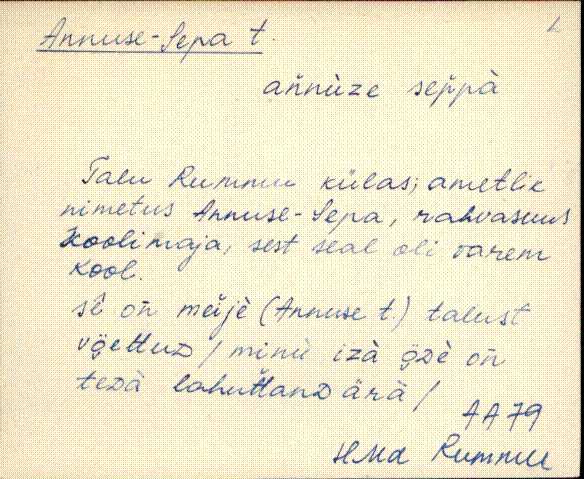 Annuse-Sepa t.
L
an̄nùze sep̄pà
Talu Rummu külas; ametlik
nimetus Annuse-Sepa, rahvasuus
Koolimaja, sest seal oli varem
kool.
sē on̄ meijè (Annuse t.) talust
võ̭ettuD / minù izà õ̭dè on̄
teDà lahut̄tanD ärä /
AA 79
HMd Rummu